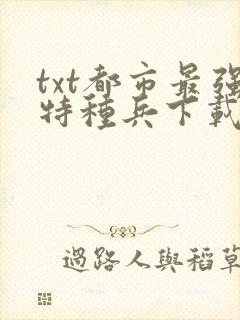 txt都市最强
特種兵下載
過路人與稻草